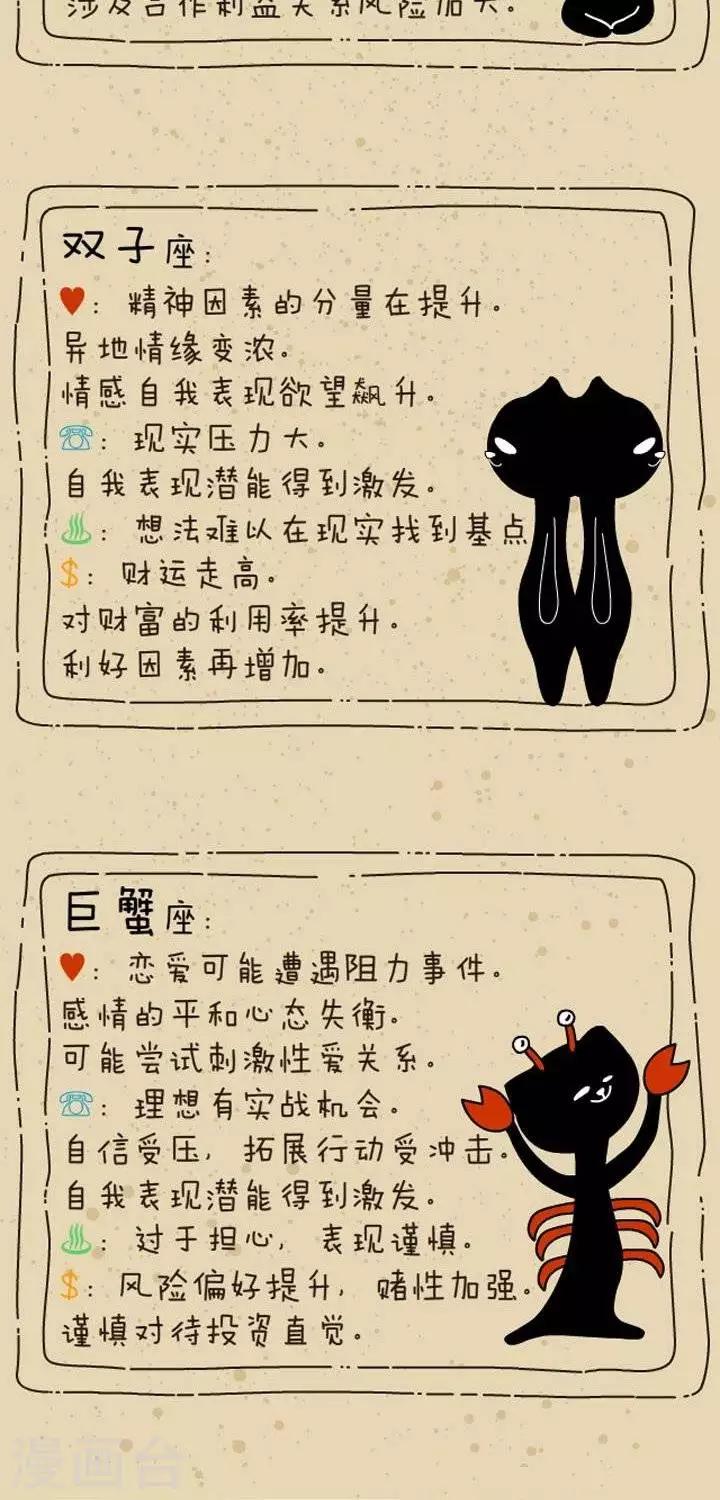 涉及合作利益关系风险加大。
双子座：
♥：精神因素的分量在提升。
异地情缘变浓。
情感自我表现欲望飙升。
☎：现实压力大。
自我表现潜能得到激发。
♨：想法难以在现实找到基点
$：财运走高。
对财富的利用率提升。
利好因素再增加。
巨蟹座：
♥：恋爱可能遭遇阻力事件。
感情的平和心态失衡。
可能尝试刺激性爱关系。
☎：理想有实战机会。
自信受压，拓展行动受冲击。
自我表现潜能得到激发。
♨：过于担心，表现谨慎。
$：风险偏好提升，赌性加强。
谨慎对待投资直觉。
漫画台